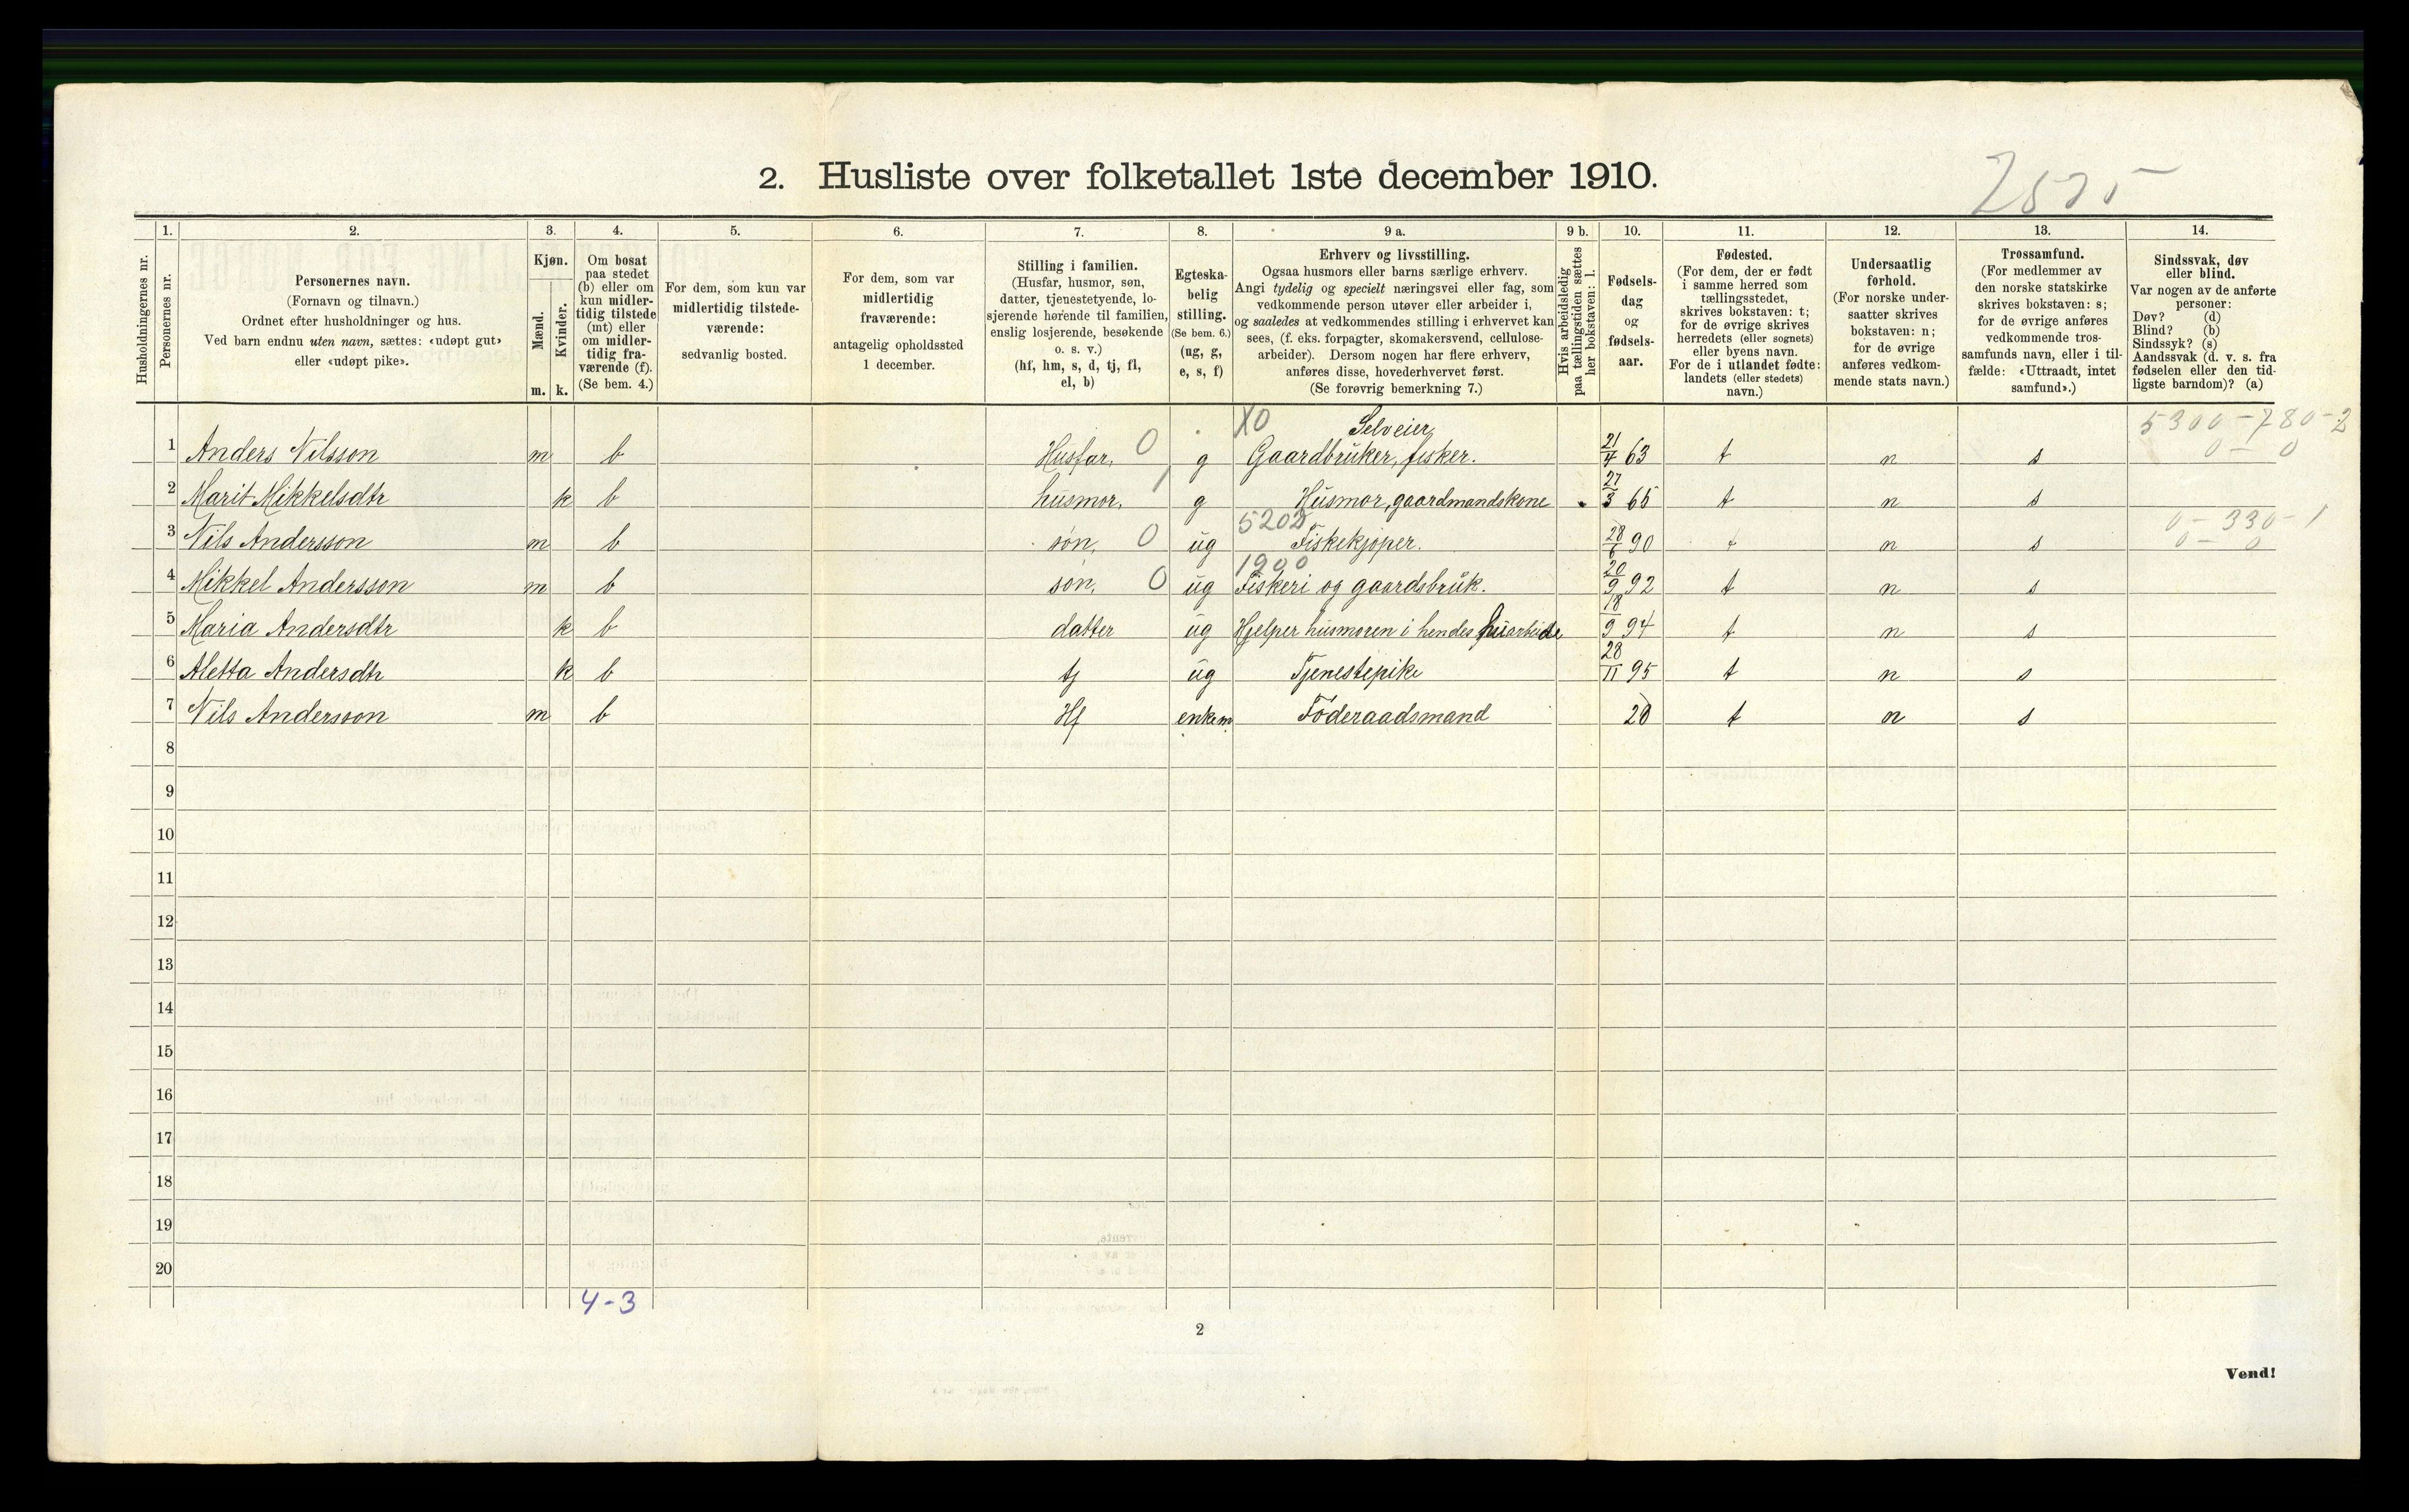 2. Husliste over folketallet 1ste december 1910.
Husholdningernes nr.
1.
Personernes nr.
2.
Personernes navn.
(Fornavn og tilnavn.)
Ordnet efter husholdninger og hus.
Ved barn endnu uten navn, sættes: «udøpt gut»
eller «udøpt pike».
3.
Kjøn.
Mænd.
Kvinder.
m. k.
4.
Om bosat
paa stedet
(b) eller om
kun midler-
tidig tilstede
(mt) eller
om midler-
tidig fra-
værende (f).
(Se bem. 4.)
5.
For dem, som kun var
midlertidig tilstede-
værende:
sedvanlig bosted.
6.
For dem, som var
midlertidig
fraværende:
antagelig opholdssted
1 december.
7.
Stilling i familien.
(Husfar, husmor, søn,
datter, tjenestetyende, lo-
sjerende hørende til familien,
enslig losjerende, besøkende
o. s. v.)
(hf, hm, s, d, tj, fl,
el, b)
8.
Egteska-
belig
stilling.
(Se bem. 6.)
(ug, g,
e, s, f)
9 a.
Erhverv og livsstilling.
Ogsaa husmors eller barns særlige erhverv.
Angi tydelig og specielt næringsvei eller fag, som
vedkommende person utøver eller arbeider i,
og saaledes at vedkommendes stilling i erhvervet kan
sees, (f. eks. forpagter, skomakersvend, cellulose-
arbeider). Dersom nogen har flere erhverv,
anføres disse, hovederhvervet først.
(Se forøvrig bemerkning 7.)
9 b.
Hvis arbeidsledig
paa tællingstiden sættes
her bokstaven: l.
10.
Fødsels-
dag
og
fødsels-
aar.
11.
Fødested.
(For dem, der er født
i samme herred som
tællingsstedet,
skrives bokstaven: t;
for de øvrige skrives
herredets (eller sognets)
eller byens navn.
For de i utlandet fødte:
landets (eller stedets)
navn.)
12.
Undersaatlig
forhold.
(For norske under-
saatter skrives
bokstaven: n;
for de øvrige
anføres vedkom-
mende stats navn.)
13.
Trossamfund.
(For medlemmer av
den norske statskirke
skrives bokstaven: s;
for de øvrige anføres
vedkommende tros-
samfunds navn, eller i til-
fælde: «Uttraadt, intet
samfund».)
14.
Sindssvak, døv
eller blind.
Var nogen av de anførte
personer:
Døv? (d)
Blind? (b)
Sindssyk? (s)
Aandssvak (d. v. s. fra
fødselen eller den tid-
ligste barndom)? (a)
X0 Selveier 5300-780-2
1 Anders Nilsson m b Husfar, 0 g Gaardbruker, fisker. 21/4 63 t n s 0-0
2 Marit Mikkelsdtr k b husmor, 1 g Husmor, gaardmandskone 27/3 65 t n s
5202 0-330-1
3 Nils Andersson m b søn, 0 ug Fiskekjøper. 28/6 90 t n s 0-0
1900
4 Mikkel Andersson m b søn, 0 ug Fiskeri og gaardsbruk. 20/9 92 t n s
5 Maria Andersdtr k b datter ug Hjelper husmoren i hendes husarbeide 18/9 94 t n s
6 Aletta Andersdtr k b tj ug Tjenestepike 28/11 95 t n s
7 Nils Andersson m b Hf enkem Föderaadsmand 20 t n s
8
9
10
11
12
13
14
15
16
17
18
19
20
4-3
2
Vend!